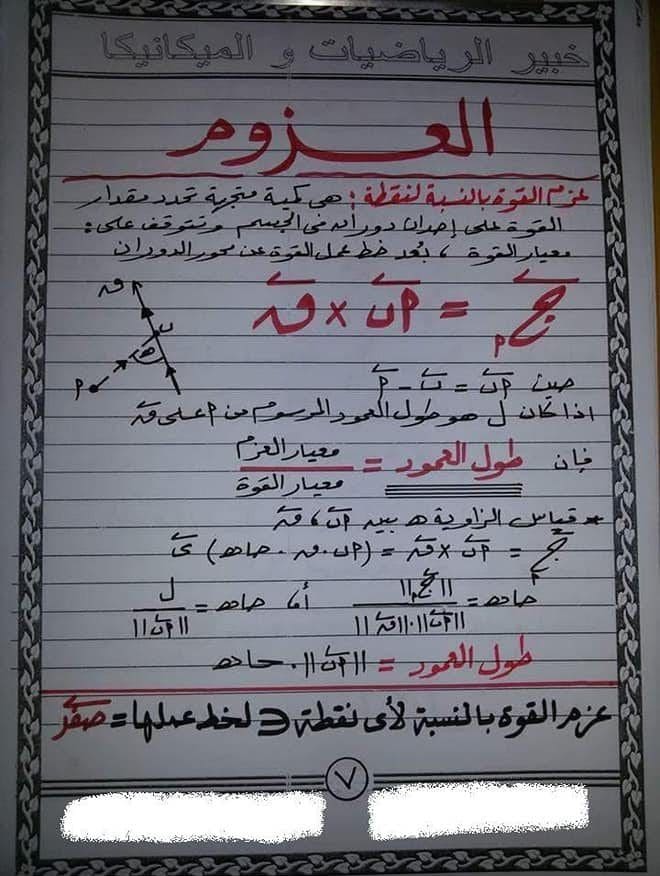 خبير الرياضيات و الميكانيكا
العزوم
عزم القوة بالنسبة لنقطة : هى كمية متجهة تحدد مقدار
القوة على إحداث دوران فى الجسم وتتوقف على :
معيار القوة ، بُعد خط عمل القوة عن محور الدوران
ج⃗م = م ن⃗ × ق⃗
ق⃗
ن
ه
م
حيث م ن⃗ = ن⃗ - م⃗
اذا كان ل هو طول العمود المرسوم من م على ق⃗
فإن طول العمود = معيار العزم / معيار القوة
* قياس الزاوية ه بين م ن⃗ ، ق⃗
ج⃗م = م ن⃗ × ق⃗ = (م ن . ق . حا ه) ى⃗
حا ه = ||ج⃗م|| / ||م ن⃗|| . ||ق⃗|| أما حا ه = ل / ||م ن⃗||
طول العمود = ||م ن⃗|| . حا ه
عزم القوة بالنسبة لأى نقطة ∈ لخط عملها = صفر
٧